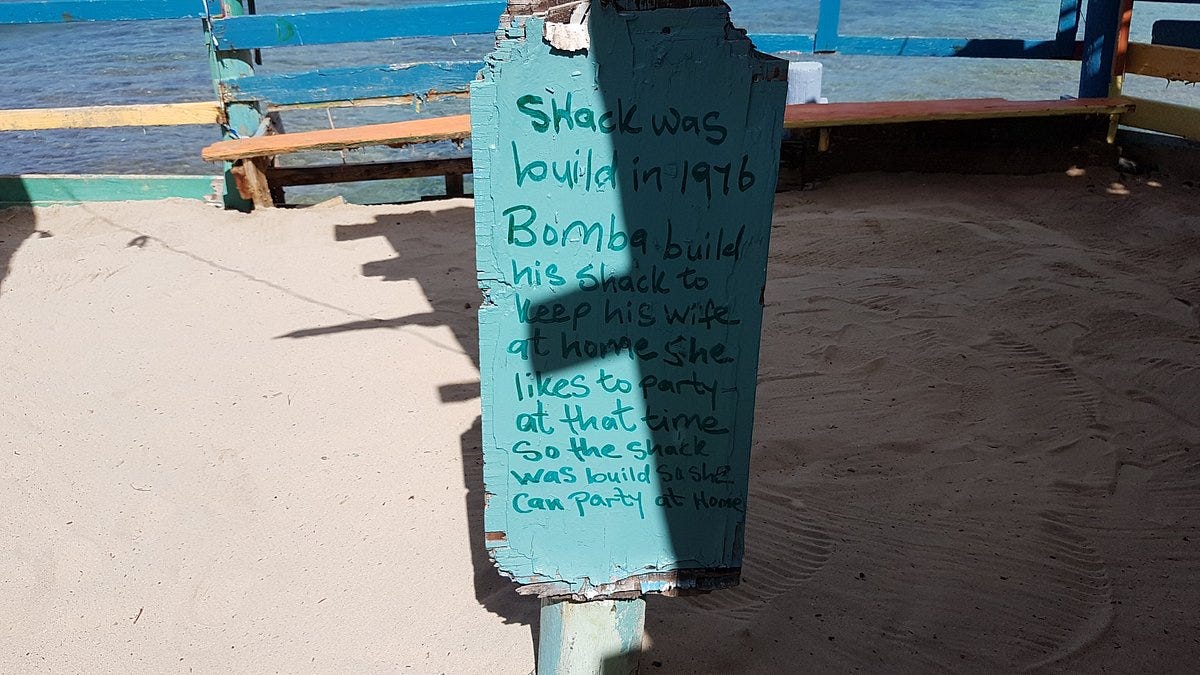 Shack was
build in 1976
Bomba build
his shack to
keep his wife
at home She
likes to party-
at that time
So the shack
was build so she
Can Party at Home